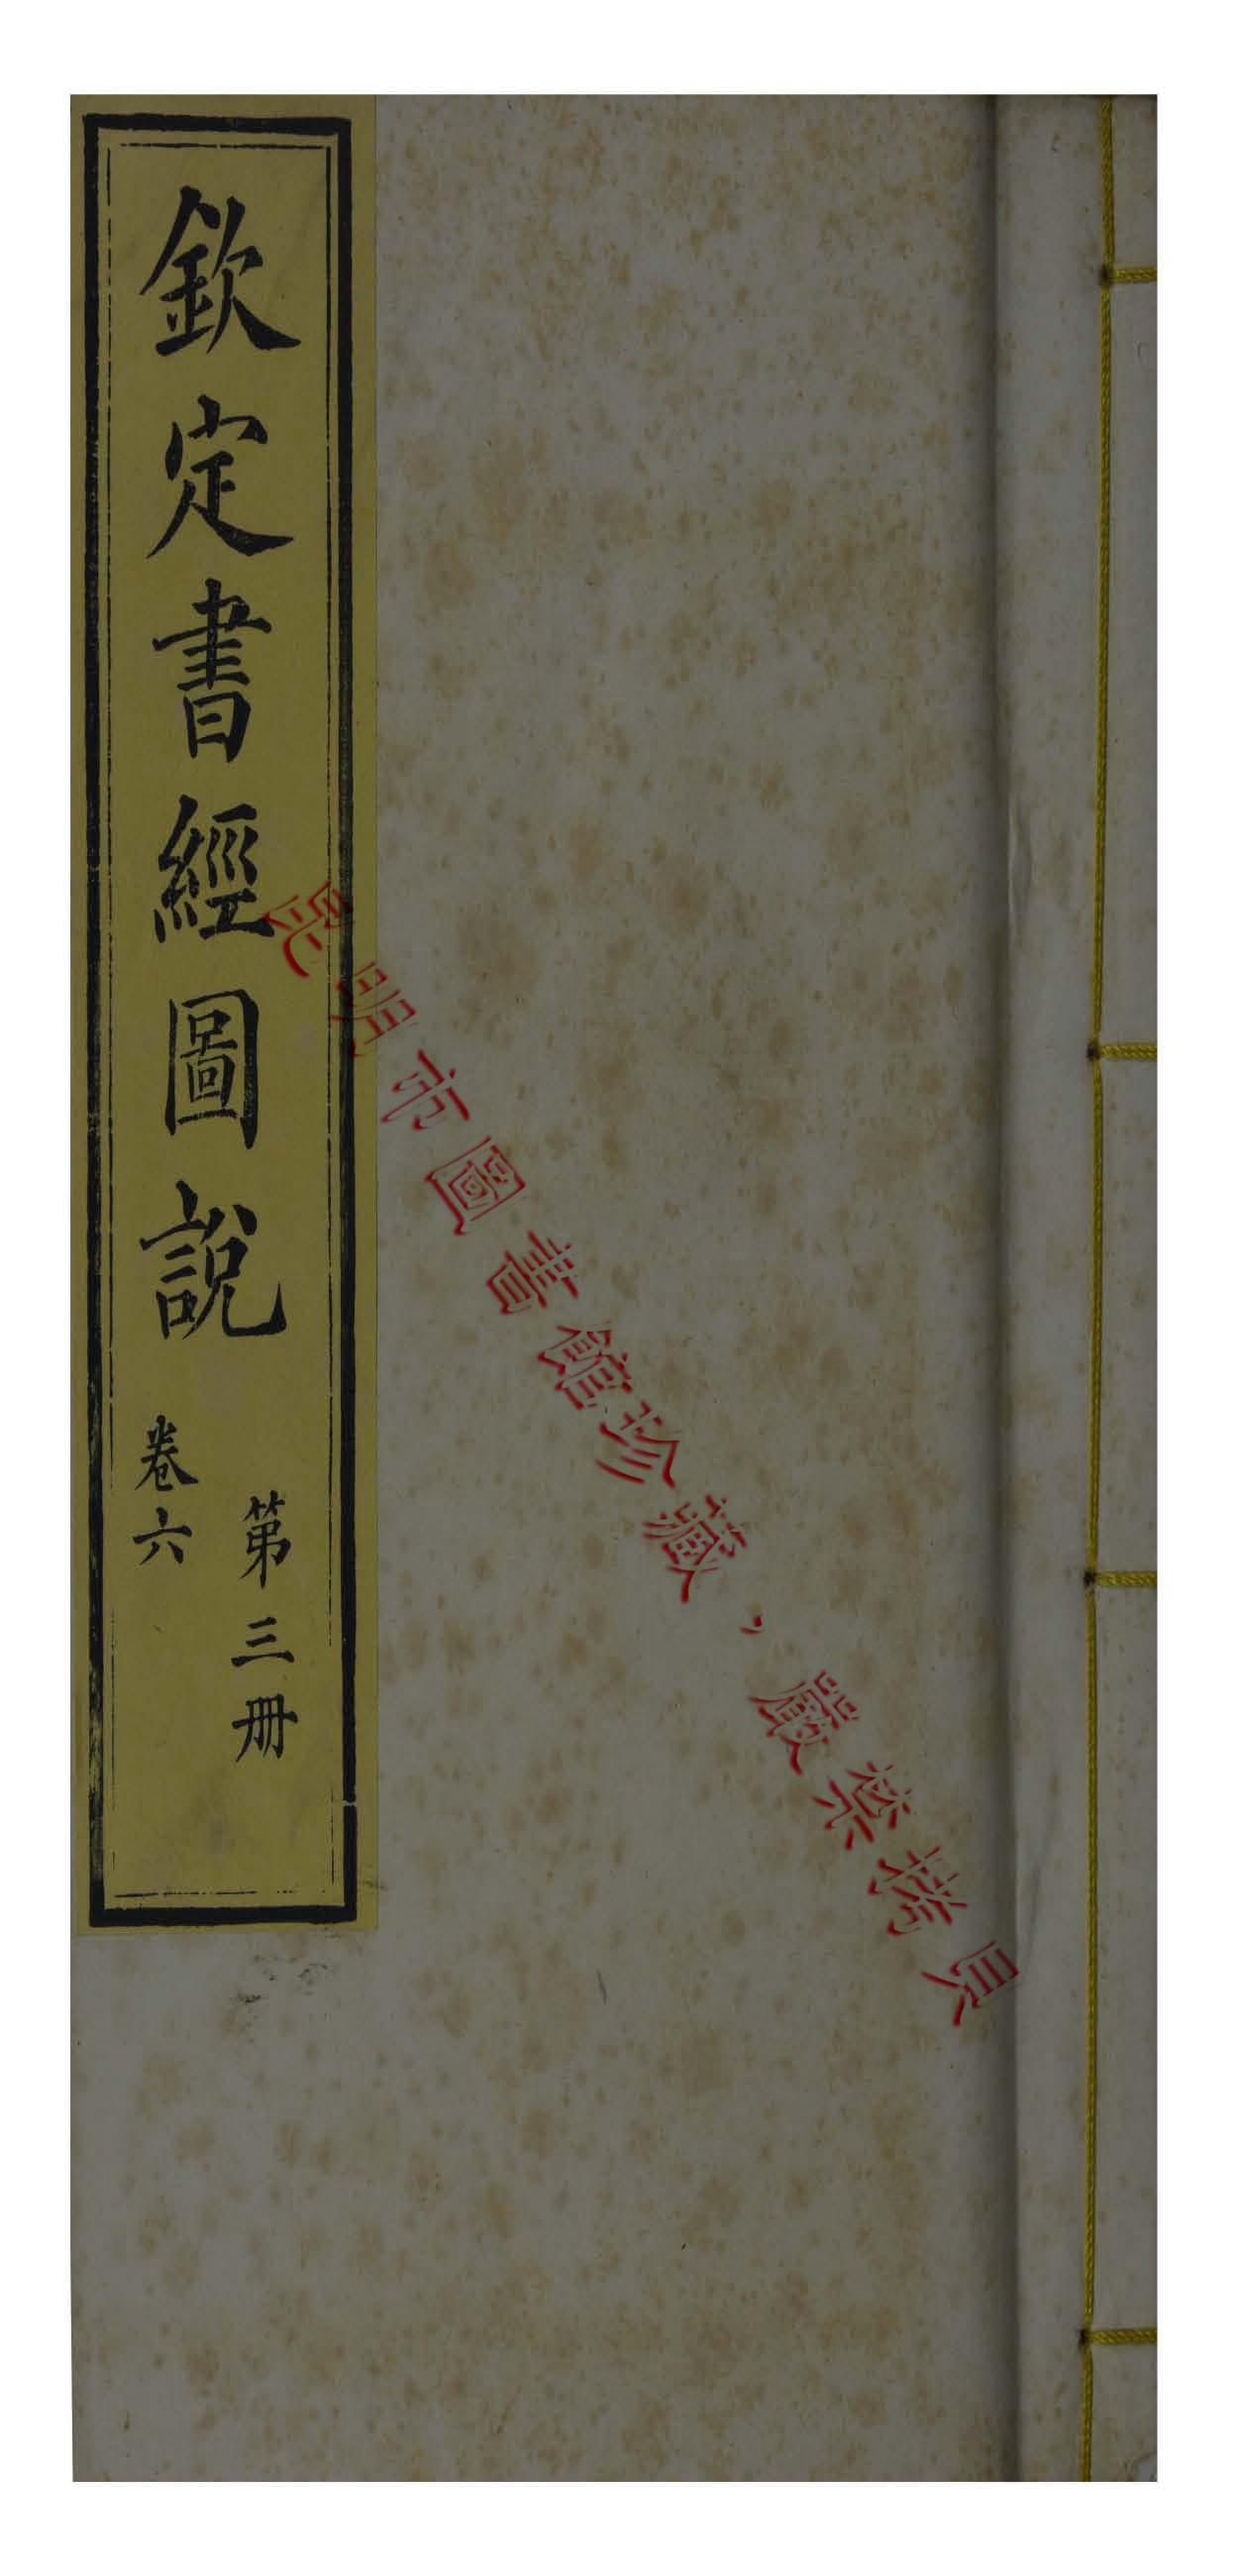 欽定書經圖說
第三冊
卷六
昆明市圖書館珍藏，嚴禁拷貝